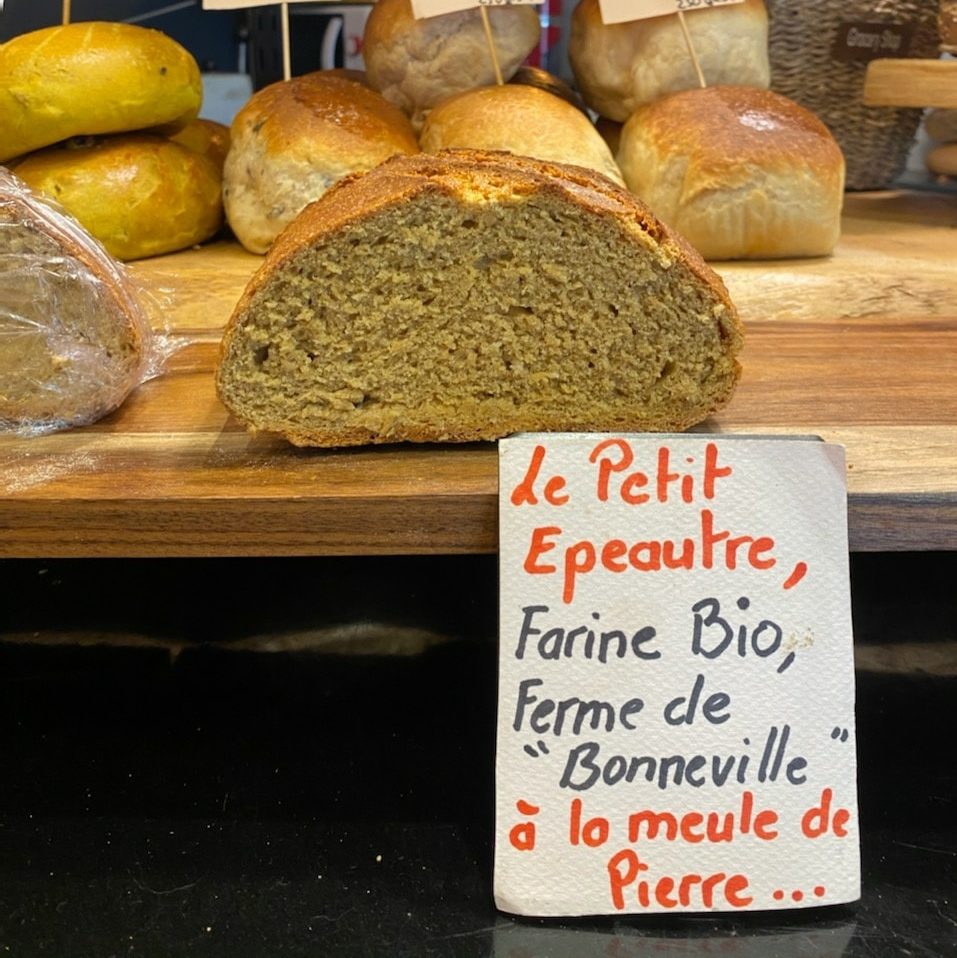 Grocery Shop
Le Petit
Epeautre,
Farine Bio,
Ferme de
"Bonneville"
à la meule de
Pierre ...